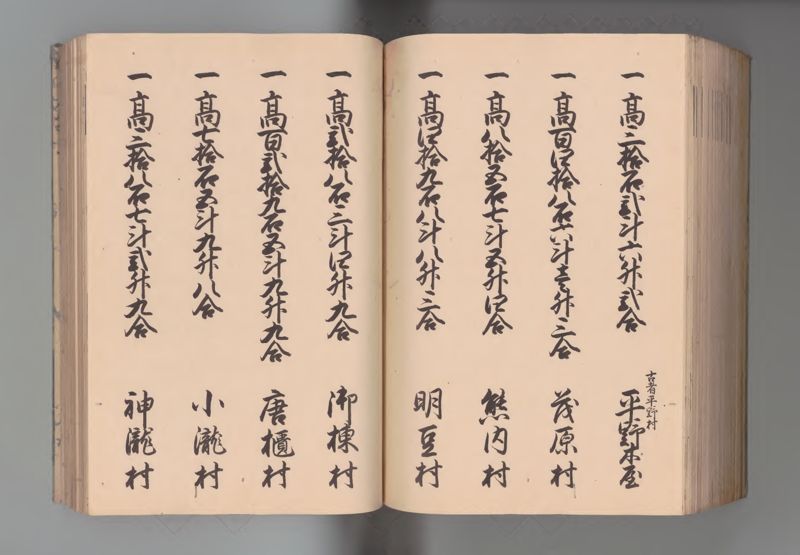 一髙三拾石弐斗六升弐合 平野木屋
古者平野村
一髙百四拾八石六斗壱升三合 茂原村
一髙八拾五石七斗五升四合 熊内村
一髙四拾九石八斗八升三合 明豆村
一髙弐拾八石三斗四升九合 御棟村
一髙百弐拾九石五斗九升九合 唐櫃村
一髙七拾石五斗九升八合 小瀧村
一髙三拾八石七斗弐升九合 神瀧村